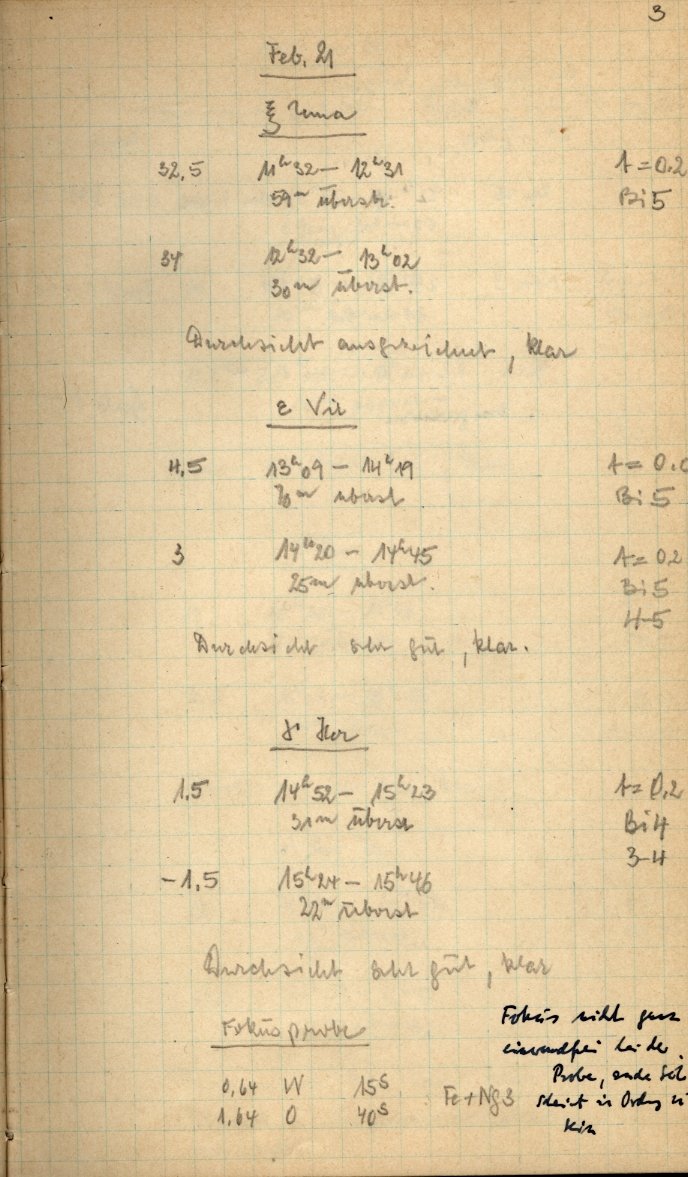 3
Feb. 21
ξ Uma
32,5 11ʰ32 – 12ʰ31 A = 0.2
59ᵐ überst. Bi 5
34 12ʰ32 – 13ʰ02
30ᵐ überst.
Durchsicht ausgezeichnet, klar
ε Vir
4,5 13ʰ09 – 14ʰ19 A = 0.
70ᵐ überst Bi 5
3 14ʰ20 – 14ʰ45 A = 0.2
25ᵐ überst. Bi 5
4-5
Durchsicht sehr gut, klar.
Her
1,5 14ʰ52 – 15ʰ23 A = 0,2
31ᵐ überst Bi 4
3-4
-1,5 15ʰ24 – 15ʰ46
22ᵐ überst
Durchsicht sehr gut, klar
Fokusprobe
Fokus nicht ganz
einwandfrei bei der
Probe,
0,64 W 15ˢ
Fe + Ng 3
1.64 O 40ˢ